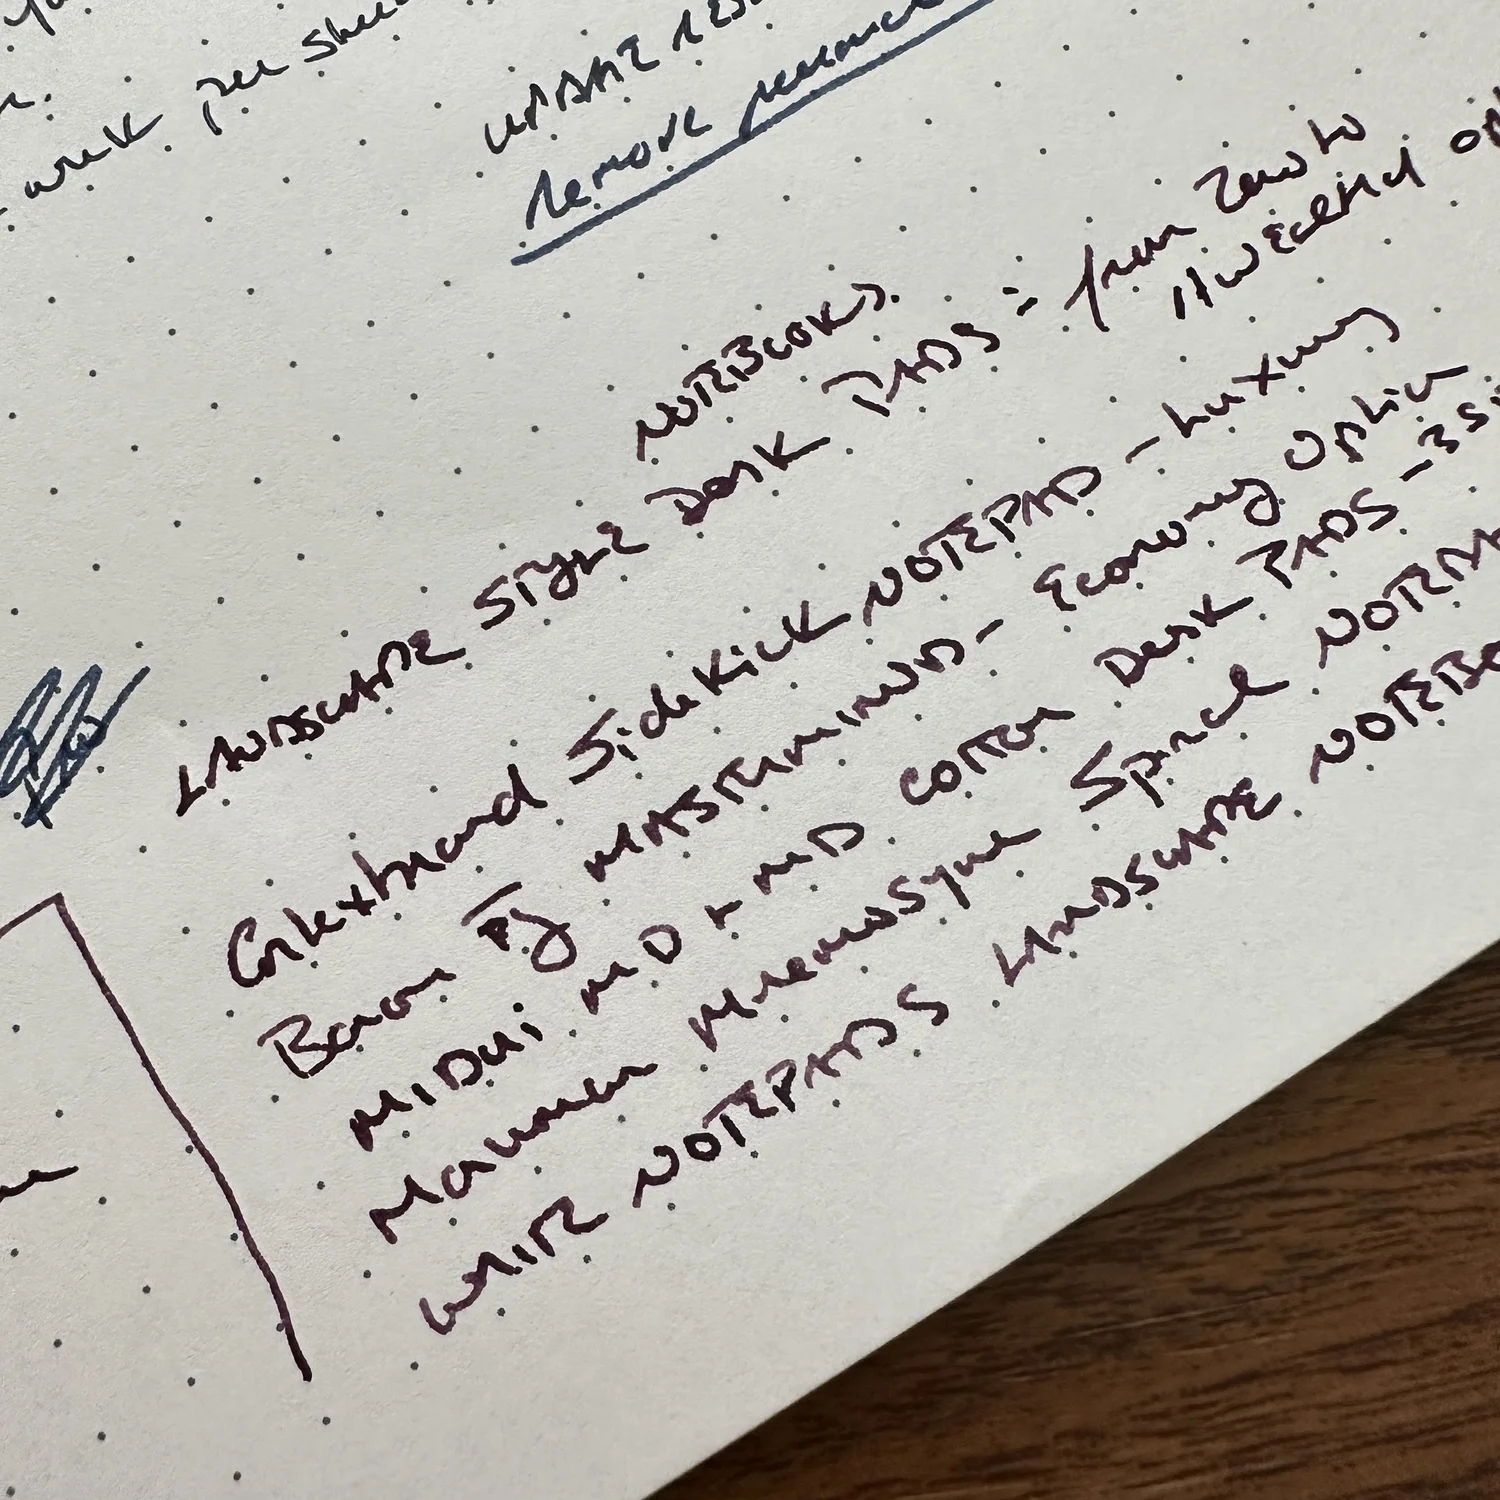 week per
UPDATE
Remove
NOTEBOOKS.
LANDSCAPE STYLE DESK PADS: from Zero to
Weekend
Cortexbrand Sidekick NOTEPAD - Luxury
Baron Fig MASTERMIND - Economy Option
MIDORI MD + MD COTTON DESK PADS - 3
Maruman Mnemosyne Spiral
WRITE NOTEPADS LANDSCAPE